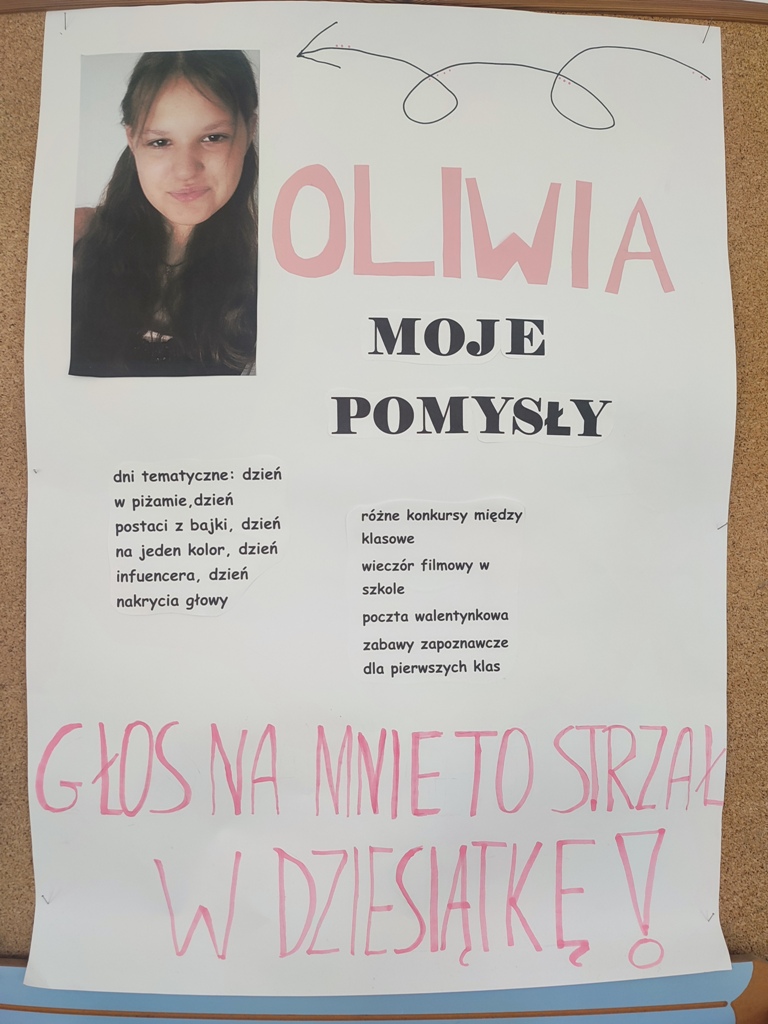 OLIWIA
MOJE
POMYSŁY
dni tematyczne: dzień
w piżamie,dzień
postaci z bajki, dzień
na jeden kolor, dzień
infuencera, dzień
nakrycia głowy
różne konkursy między
klasowe
wieczór filmowy w
szkole
poczta walentynkowa
zabawy zapoznawcze
dla pierwszych klas
GŁOS NA MNIE TO STRZAŁ
W DZIESIĄTKĘ!